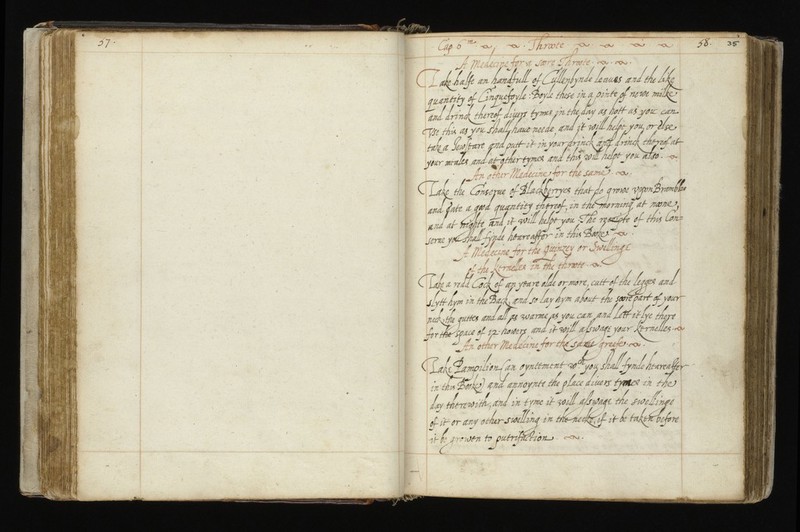 57.
Cap 6 me Throte 58. 35
A Medecine for a sore Throte
Take halfe an handfull of Cullenbynde leaves and the like
quantity of Cinquefoyle: Boyle these in a pinte of newe milke
and drink thereof divers tymes in the day as hott as you can
Use this as you shall have neede and it will helpe you, or else
take a and putt it in your drinck and drinck thereof at
your meales and at other tymes and this will helpe you also.
An other Medecine for the same
Take the Conserve of Blackberryes that do growe upon Brambles
and eate a good quantity thereof, in the morning, at noone,
and at nighte and it will helpe you. The of this Con=
serve you shall fynde heereafter in this Booke
A Medecine for the Quinzey or Swellinge
of the kernelles in the throte
Take a redd Cock of an yeare olde or more, cutt of the legges and
slytt hym in the Back and so lay hym about the sore part of your
neck the guttes and all as warme as you can and lett it lye there
for the space of 12 howers and it will aswage your kernelles
An other Medecine for the same greefe
Take Pampilion (an oyntment wch you shall fynde heereafter
in this Booke) and annoynte the place divers tymes in the
day therewith, and in tyme it will aswage the swellinge
of it or any other swelling in the necke, if it be taken before
it be growen to putrifaction.